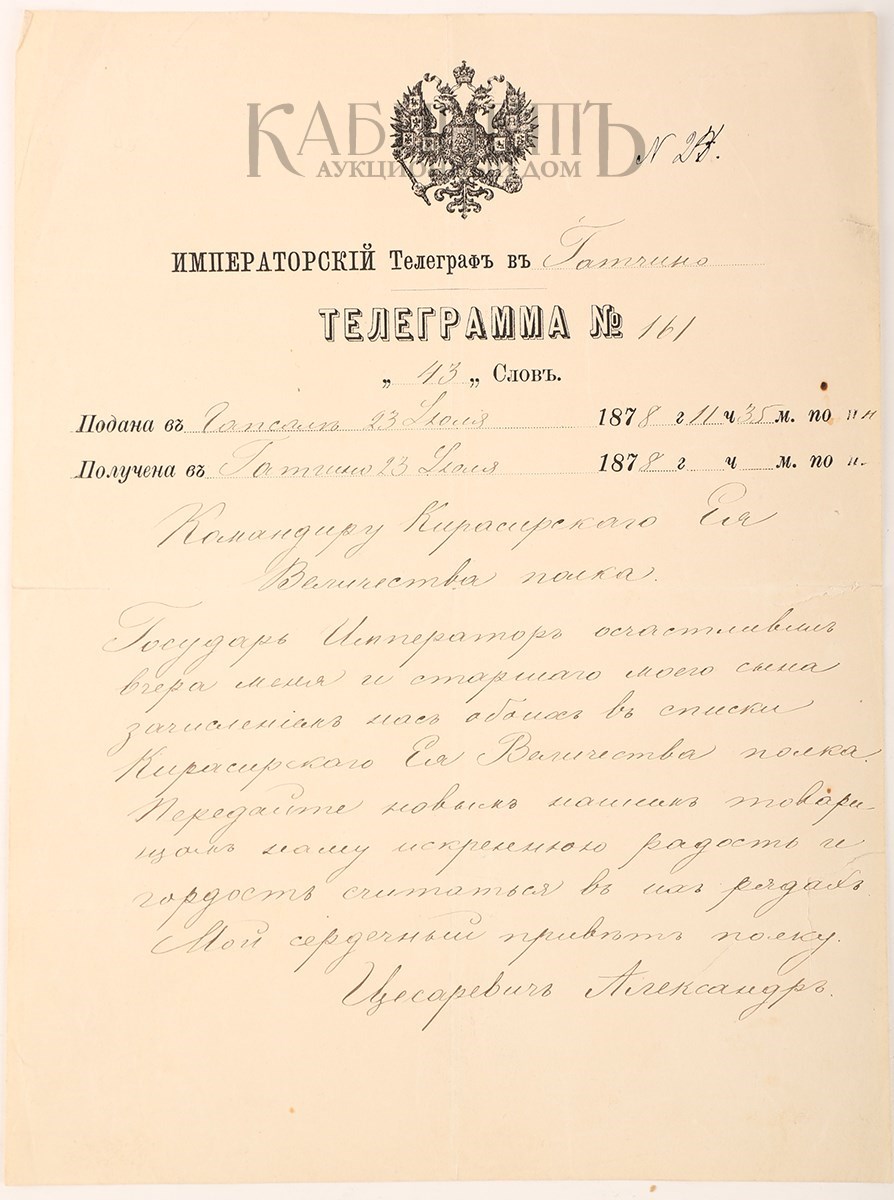 КАБИНЕТЪ
АУКЦИОННЫЙ ДОМ
N 23.
ИМПЕРАТОРСКІЙ Телеграфъ въ Гатчино
ТЕЛЕГРАММА № 161
„ 43 „ Словъ.
Подана въ Гапсалѣ 23 Іюля 1878 г 11 ч 35 м. по пн
Получена въ Гатчино 23 Іюля 1878 г ч м. по п.
Командиру Кирасирскаго Ея
Величества полка.
Государь Императоръ осчастливилъ
вчера меня и старшаго моего сына
зачисленіемъ насъ обоихъ въ списки
Кирасирскаго Ея Величества полка.
Передайте новымъ нашимъ товари-
щамъ нашу искреннюю радость и
гордость считаться въ ихъ рядахъ.
Мой сердечный привѣтъ полку.
Цесаревичъ Александръ.